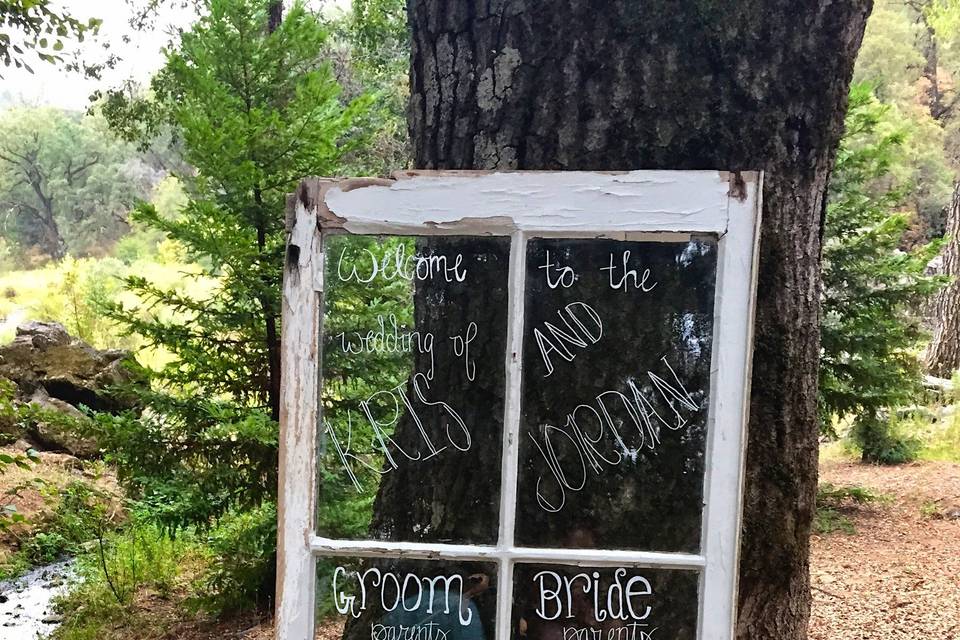 Welcome to the
wedding of
KRIS AND JORDAN
Groom Bride
parents parents